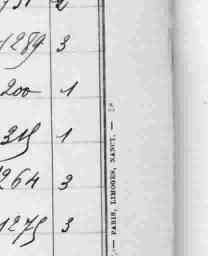 1289 3
200 1
315 1
264 3
1275 3
— PARIS, LIMOGES, NANCY. —